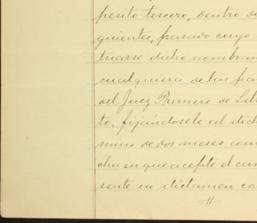 perito tercero, dentro de
guientes, pasado cuyo
tuarse dicho nombram
cualquiera de las pa
del Juez Primero de Let
to, fijándosele al dich
mino de dos meses con
cha en que acepte el car
sente su dictamen co